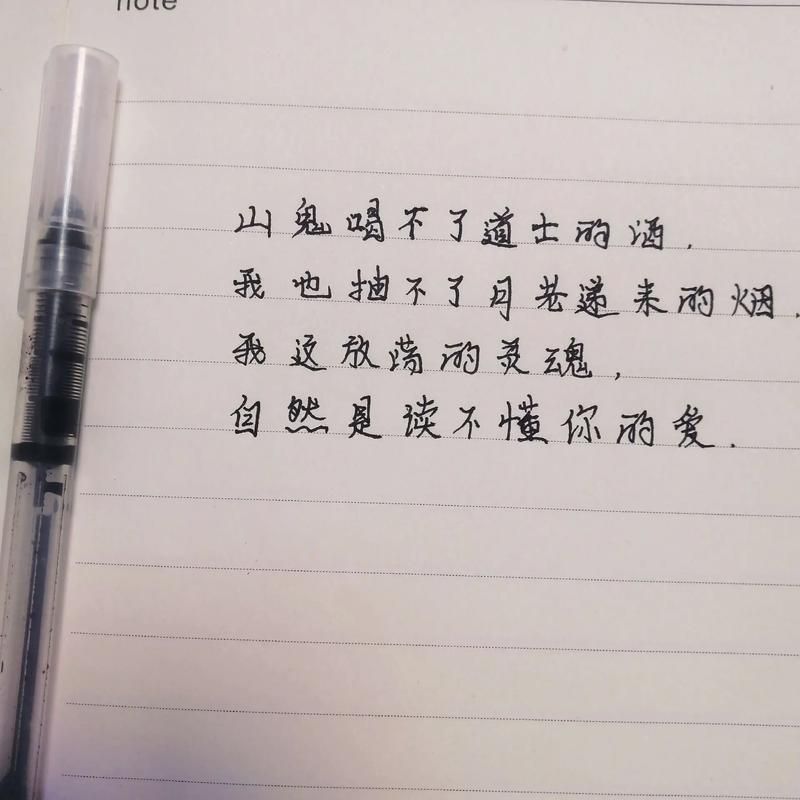 note
山鬼喝不了道士的酒.
我也抽不了月老递来的烟.
我这放荡的灵魂,
自然是读不懂你的爱.